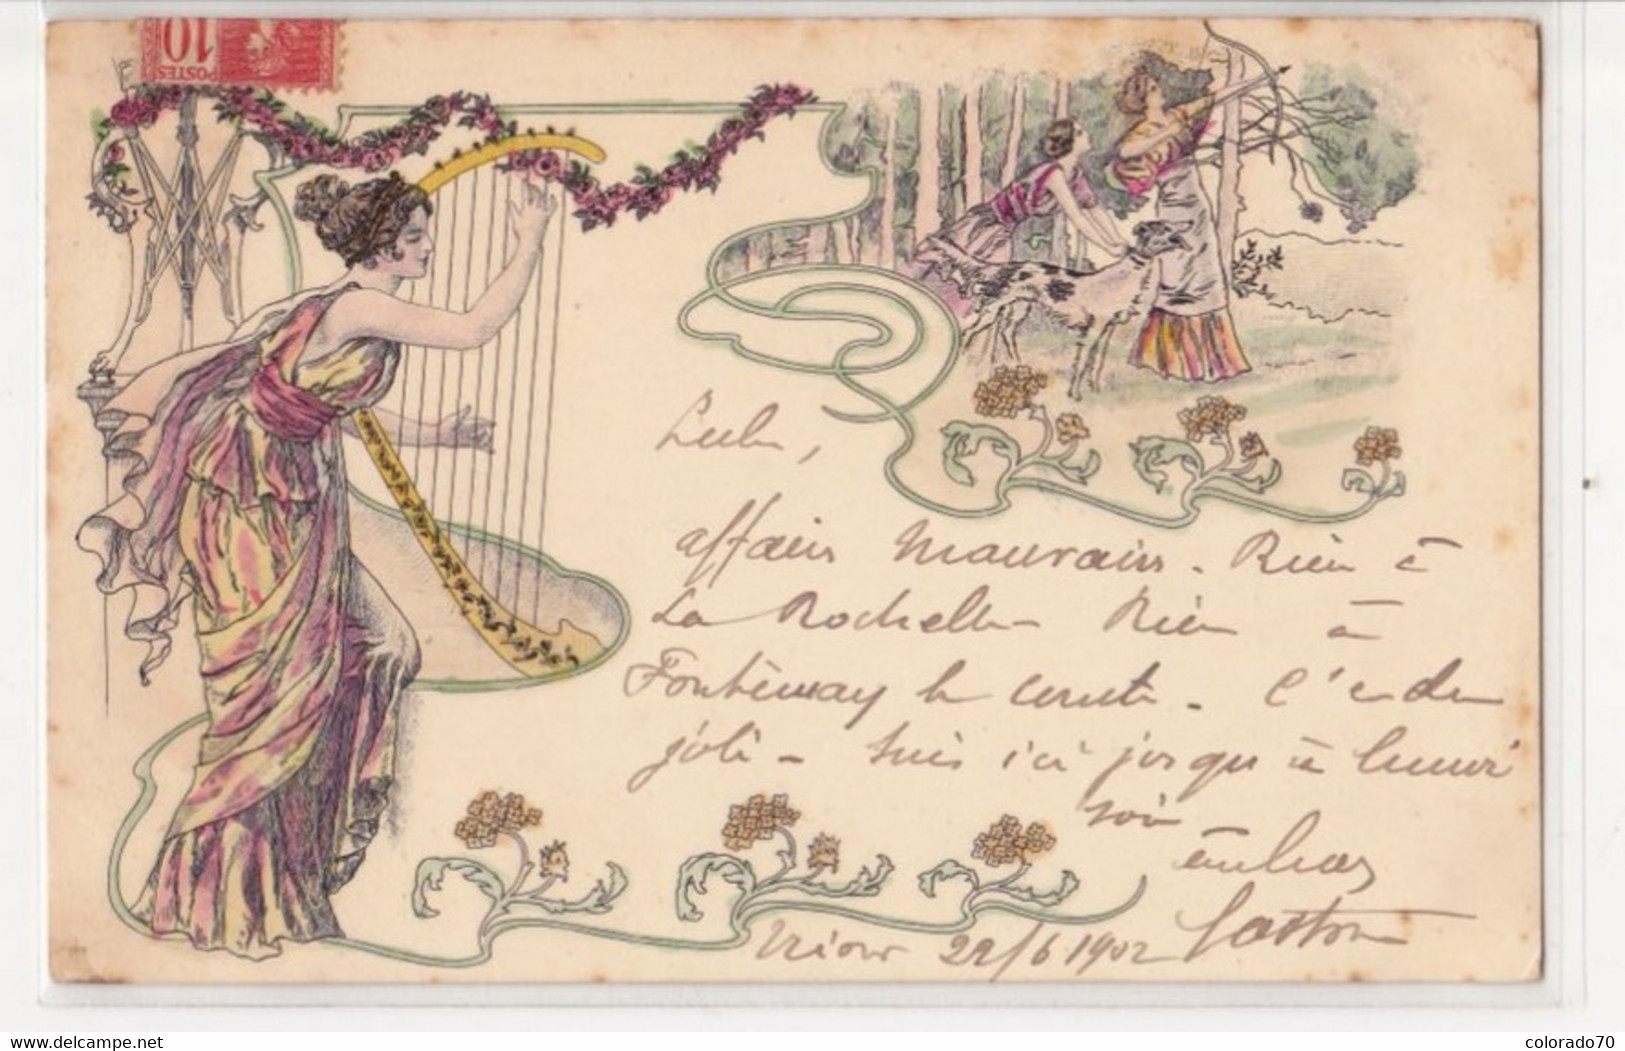 10
POSTES
Lulu,
affaires mauvaises. Rien à
La Rochelle - Rien à
Fontenay le comte - C'est du
joli - Suis ici jusqu'à lundi
soir
Gaston
22/6 1902
colorado70